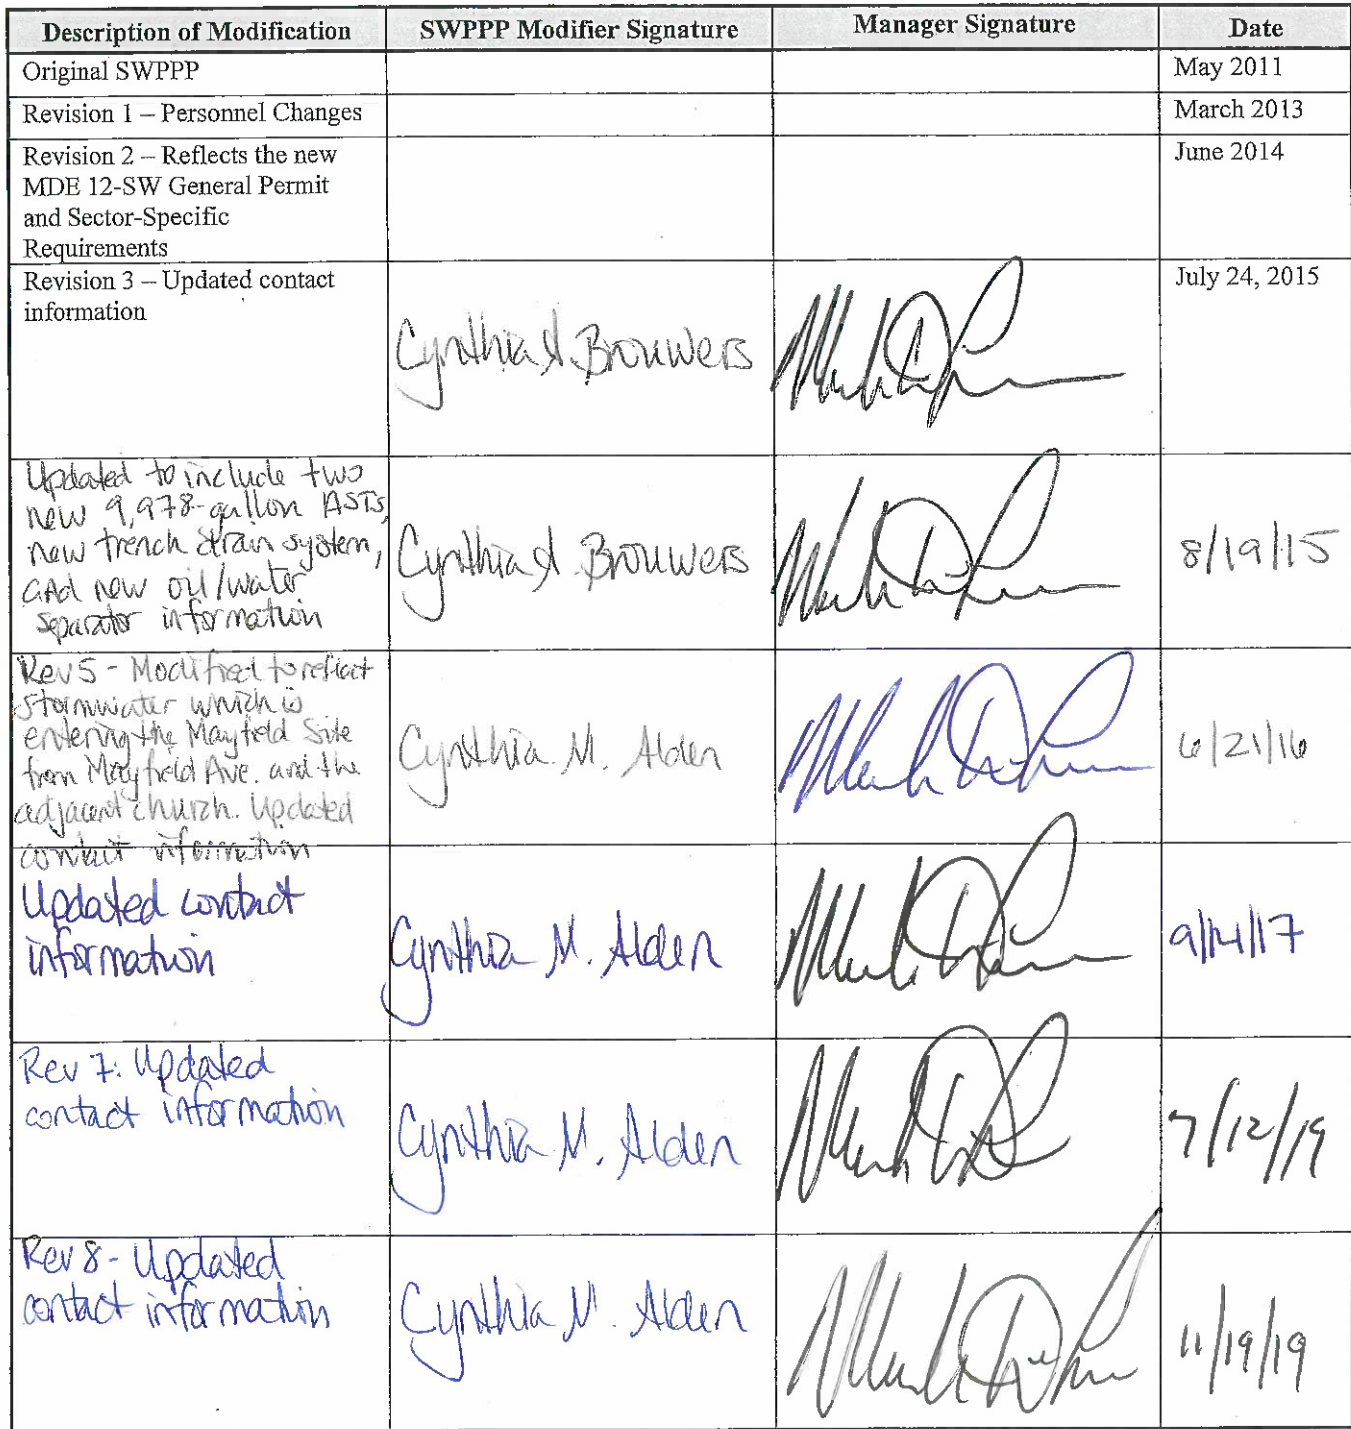 Description of Modification
SWPPP Modifier Signature
Manager Signature
Date
Original SWPPP
May 2011
Revision 1 – Personnel Changes
March 2013
Revision 2 – Reflects the new
MDE 12-SW General Permit
and Sector-Specific
Requirements
June 2014
Revision 3 – Updated contact
information
Cynthia A. Brouwers
July 24, 2015
Updated to include two
new 9,978-gallon ASTs,
new trench drain system,
and new oil/water
separator information
Cynthia A. Brouwers
8/19/15
Rev 5 - Modified to reflect
stormwater which is
entering the Mayfield Site
from Mayfield Ave. and the
adjacent church. Updated
contact information
Cynthia M. Alden
6/21/16
Updated contact
information
Cynthia M. Alden
9/14/17
Rev 7: Updated
contact information
Cynthia M. Alden
7/12/19
Rev 8 - Updated
contact information
Cynthia M. Alden
11/19/19